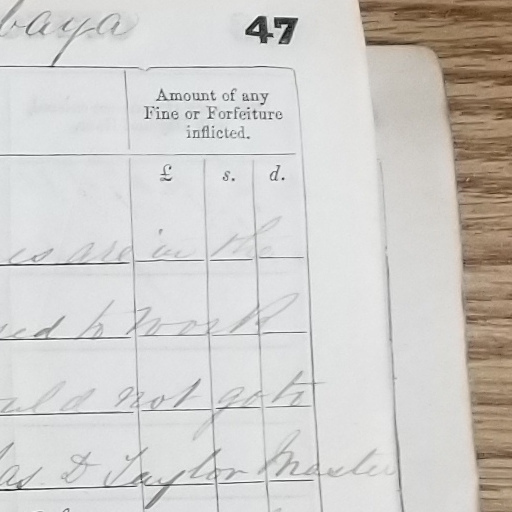 baya 47
Amount of any
Fine or Forfeiture
inflicted.
£ s. d.
es are in the
sed to work
uld not go to
as D Taylor Master